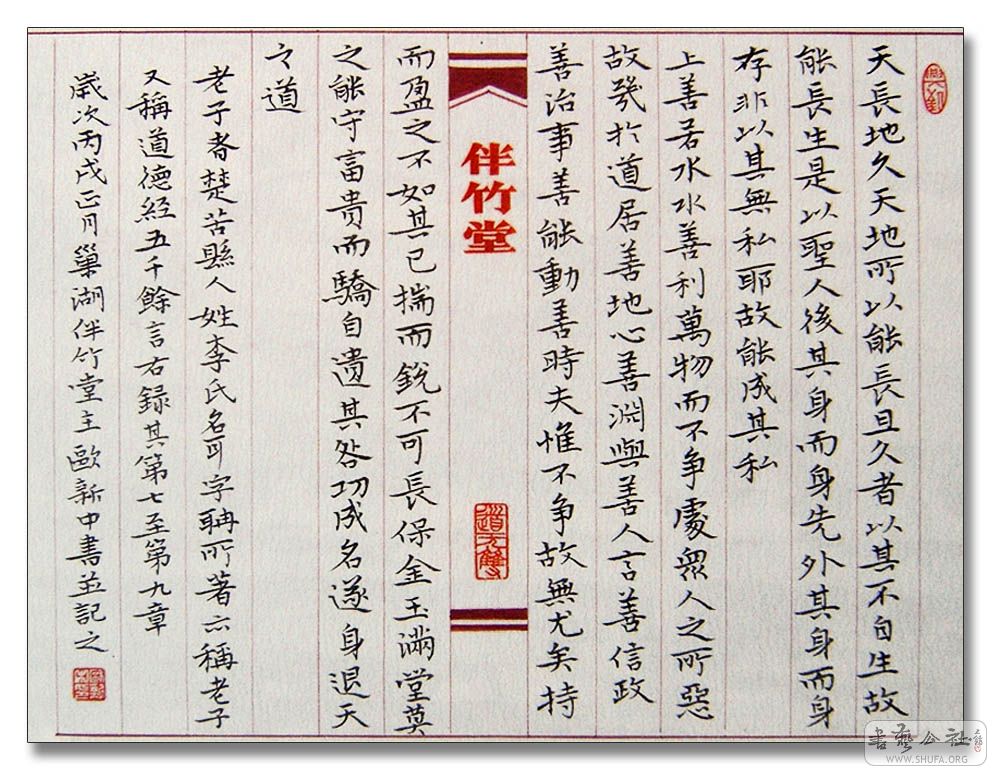 天長地久天地所以能長且久者以其不自生故
能長生是以聖人後其身而身先外其身而身
存非以其無私耶故能成其私
上善若水水善利萬物而不争處眾人之所惡
故幾於道居善地心善淵與善人言善信政
善治事善能動善時夫惟不争故無尤矣持
伴竹堂
而盈之不如其已揣而銳不可長保金玉滿堂莫
之能守富貴而驕自遺其咎功成名遂身退天
之道
老子者楚苦縣人姓李氏名耳字聃所著亦稱老子
又稱道德經五千餘言右録其第七至第九章
歲次丙戌正月巢湖伴竹堂主歐新中書並記之
書藝公社
WWW.SHUFA.ORG